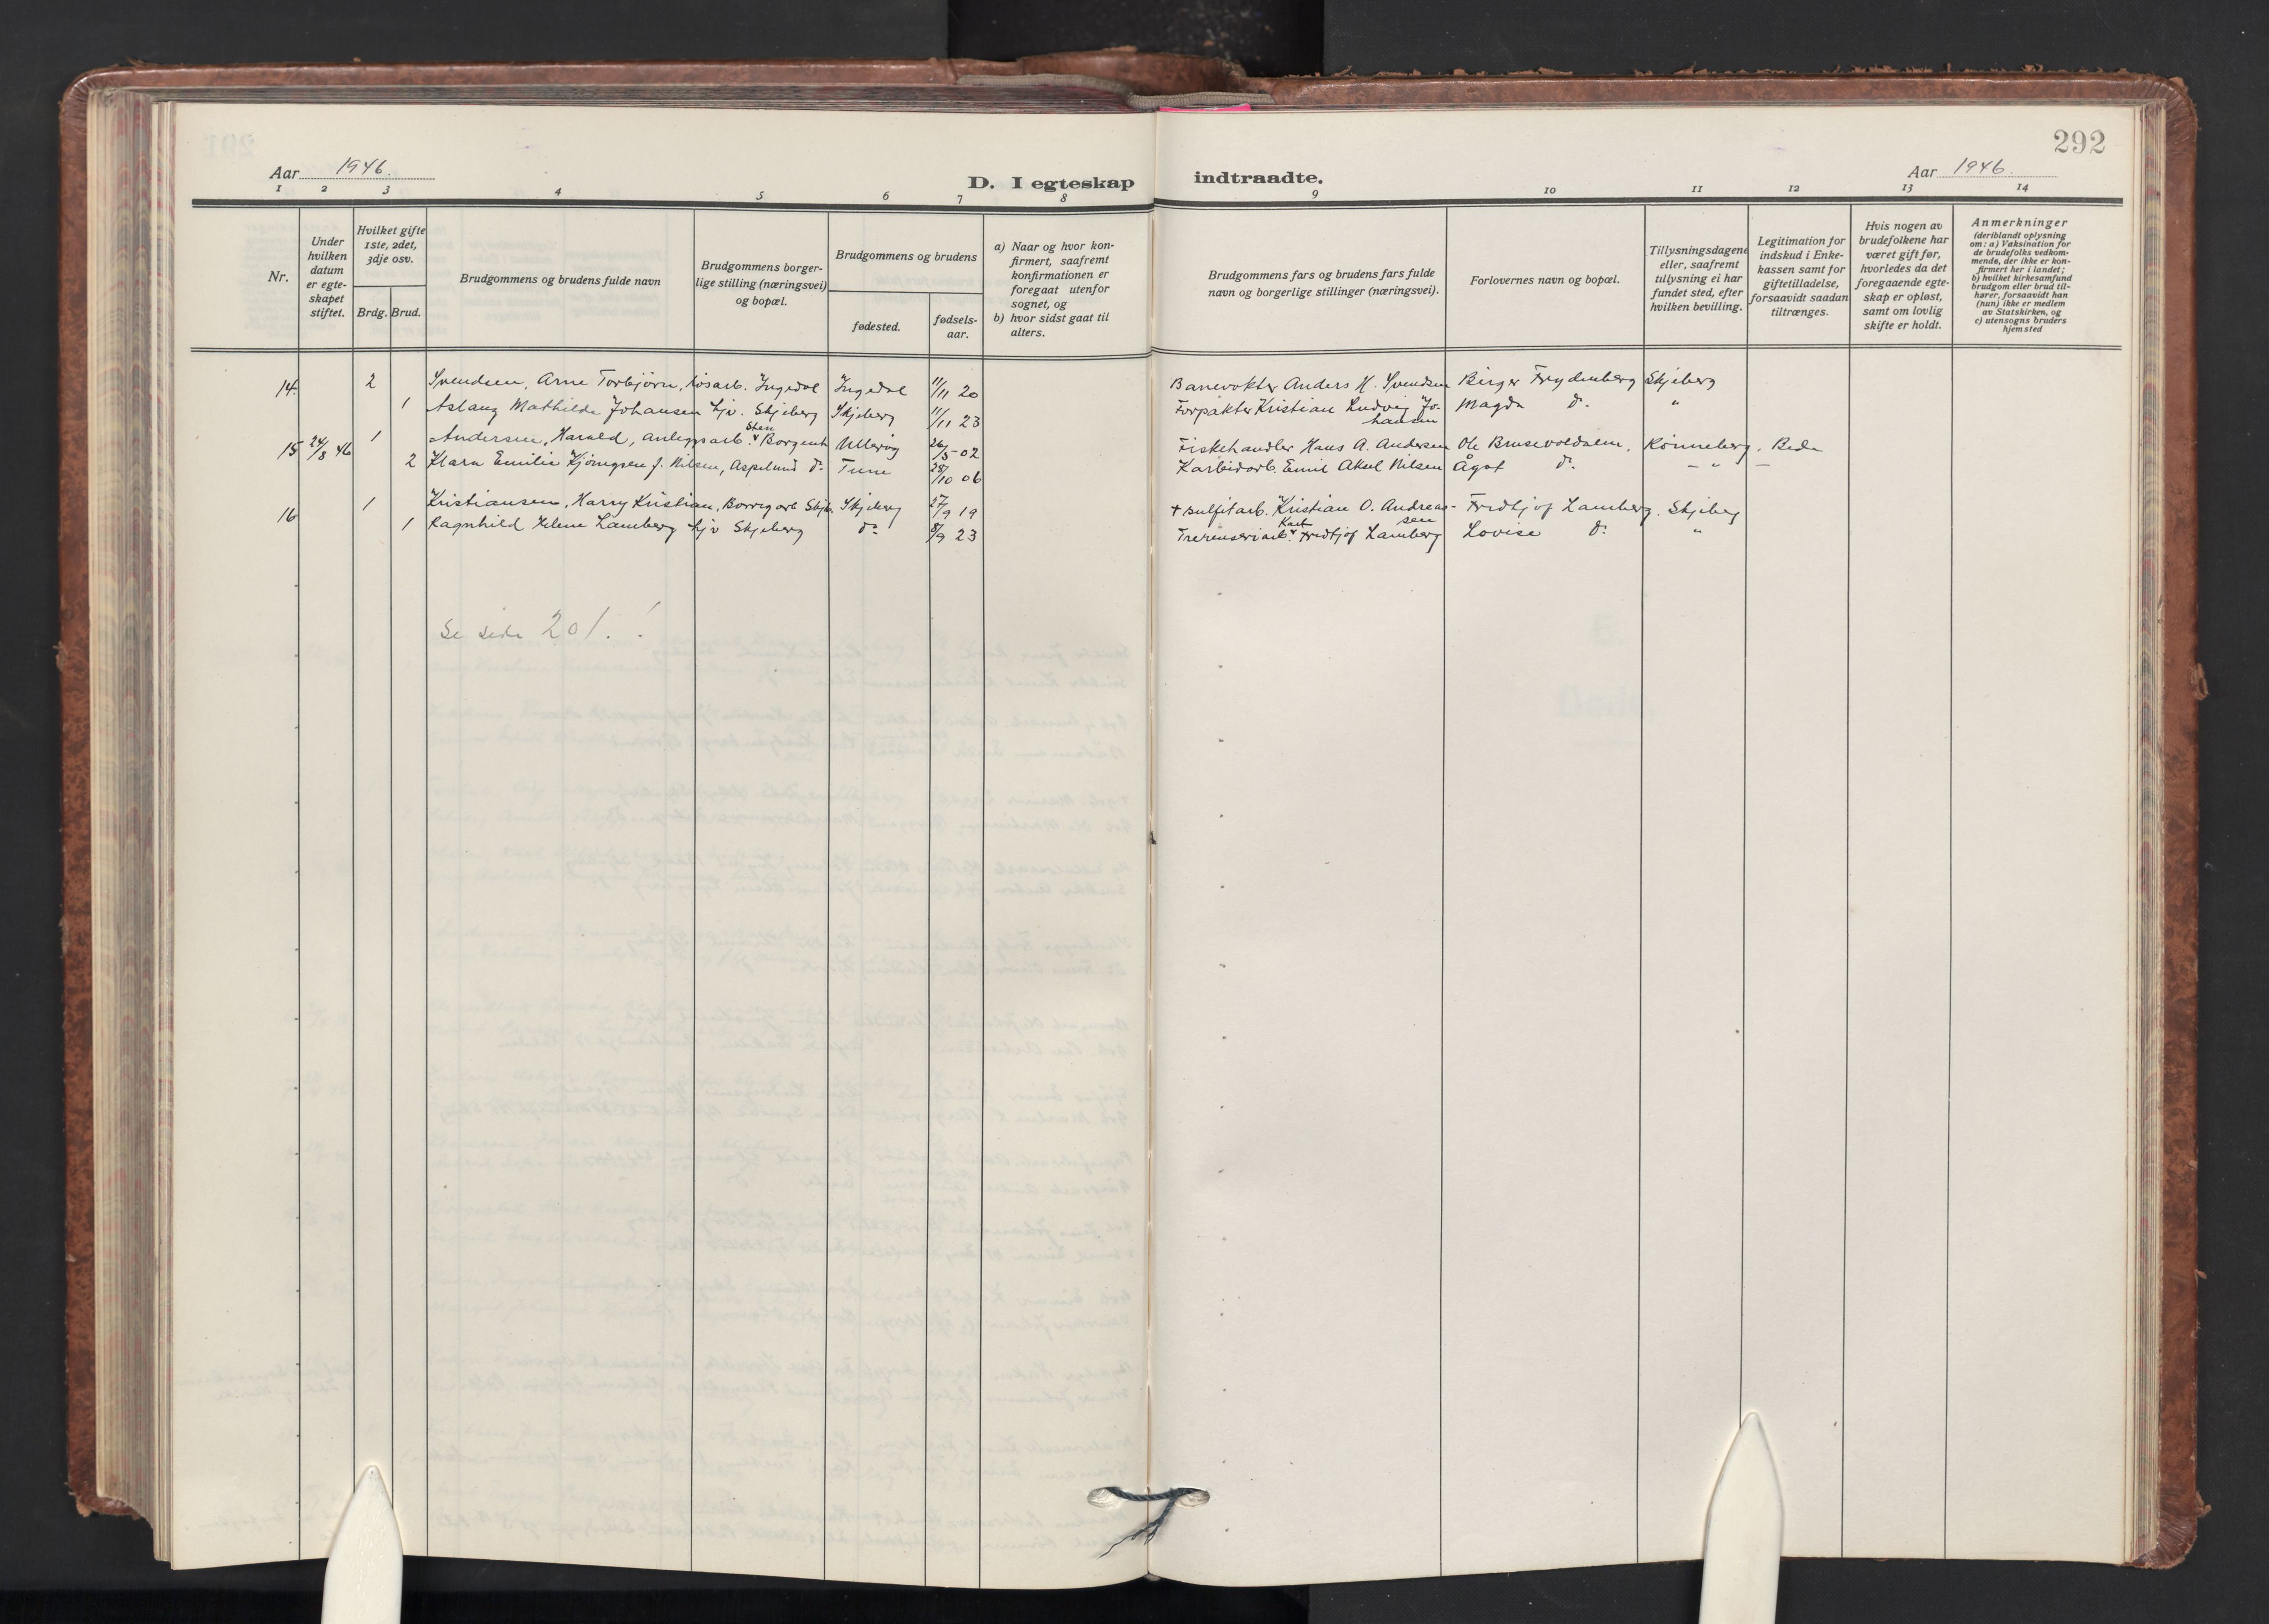 292
Aar 1946.
D. I egteskap indtraadte.
Aar 1946.
1 2 3 4 5 6 7 8 9 10 11 12 13 14
Nr.
Under
hvilken
datum
er egte-
skapet
stiftet.
Hvilket gifte
1ste, 2det,
3dje osv.
Brdg. Brud.
Brudgommens og brudens fulde navn
Brudgommens borger-
lige stilling (næringsvei)
og bopæl.
Brudgommens og brudens
fødested.
fødsels-
aar.
a) Naar og hvor kon-
firmert, saafremt
konfirmationen er
foregaat utenfor
sognet, og
b) hvor sidst gaat til
alters.
Brudgommens fars og brudens fars fulde
navn og borgerlige stillinger (næringsvei).
Forlovernes navn og bopæl.
Tillysningsdagene
eller, saafremt
tillysning ei har
fundet sted, efter
hvilken bevilling.
Legitimation for
indskud i Enke-
kassen samt for
giftetilladelse,
forsaavidt saadan
tiltrænges.
Hvis nogen av
brudefolkene har
været gift før,
hvorledes da det
foregaaende egte-
skap er opløst,
samt om lovlig
skifte er holdt.
Anmerkninger
(deriblandt oplysning
om: a) Vaksination for
de brudefolks vedkom-
mende, der ikke er kon-
firmert her i landet;
b) hvilket kirkesamfund
brudgom eller brud til-
hører, forsaavidt han
(hun) ikke er medlem
av Statskirken, og
c) utensogns bruders
hjemsted
14. 2 Svendsen, Arne Torbjørn, løsarb. Ingedal Ingedal 11/11 20 Banevokter Anders H. Svendsen Birger Frydenberg Skjeberg
1 Aslaug Mathilde Johansen hjv. Skjeberg Skjeberg 11/11 23 Forpakter Kristian Ludvig Jo-hansen Magda do. "
15 24/8 46 1 Andersen, Harald, anleggsarb. Sten v Borgenh Ullerøy 26/5-02 Fiskehandler Hans A. Andersen Ole Brusevoldalen, Rønneberg, Bede
2 Klara Emilie Kjørngsen f. Nilsen, Aspelund do. Tune 28/10 06 Karbidarb. Emil Aksel Nilsen Ågot do. – " –
16 1 Kristiansen, Harry Kristian, Borreg arb Skjb. Skjeberg 27/9 19 + sulfitarb. Kristian O. Andreas-sen Fridtjof Lamberg, Skjeberg
1 Ragnhild Helene Lamberg hjv Skjeberg do. 8/9 23 Trerenseriarb. Karl Fridtjof Lamberg Lovise do. "
Se side 201.!